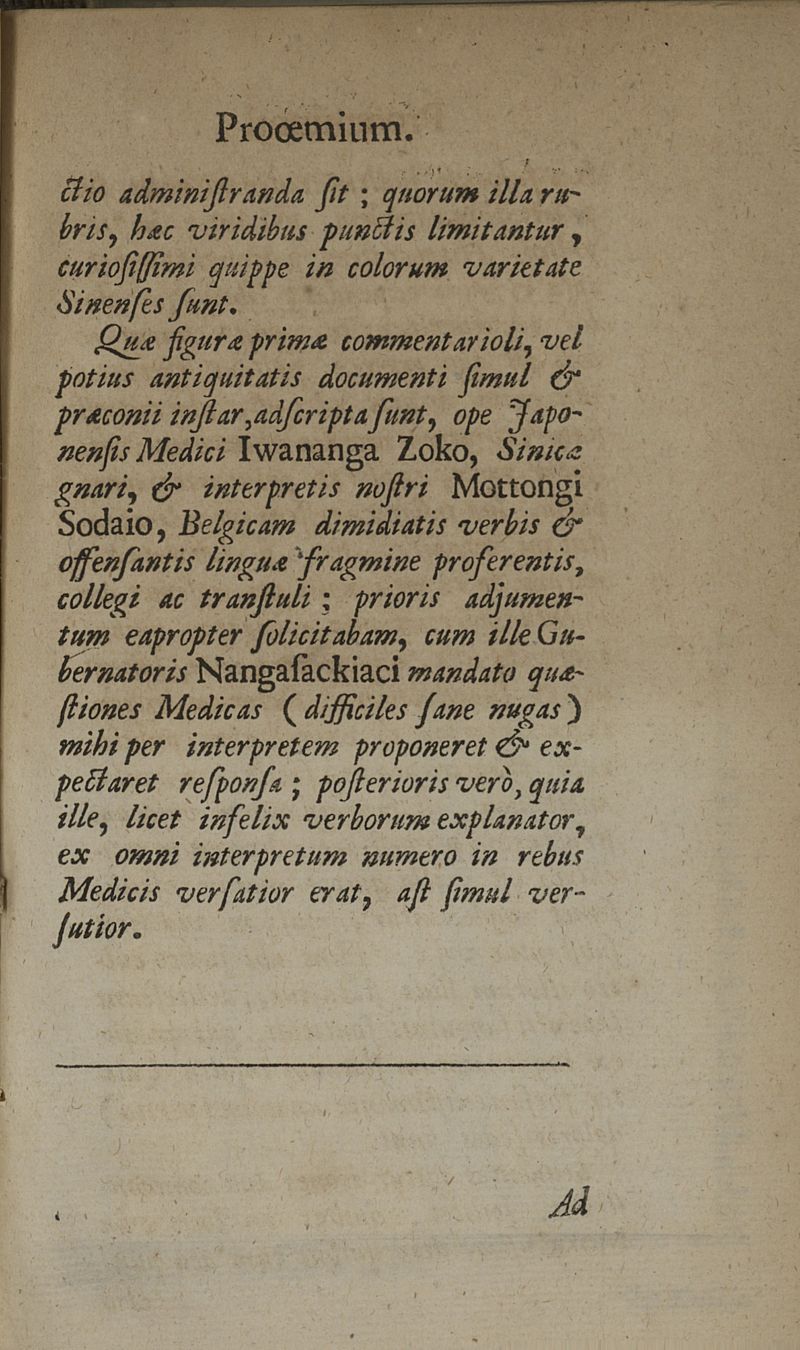 Prooemium.
ctio adminiſtranda ſit ; quorum illa ru-
bris, hæc viridibus punctis limitantur,
curioſiſſimi quippe in colorum varietate
Sinenſes ſunt.
Quæ figuræ primæ commentarioli, vel
potius antiquitatis documenti ſimul &
præconii inſtar, adſcripta ſunt, ope Japo-
nenſis Medici Iwananga Zoko, Sinicæ
gnari, & interpretis noſtri Mottongi
Sodaio, Belgicam dimidiatis verbis &
offenſantis linguæ fragmine proferentis,
collegi ac tranſtuli ; prioris adjumen-
tum eapropter ſolicitabam, cum ille Gu-
bernatoris Nangaſackiaci mandato quæ-
ſtiones Medicas ( difficiles ſane nugas )
mihi per interpretem proponeret & ex-
pectaret reſponſa ; poſterioris verò, quia
ille, licet infelix verborum explanator,
ex omni interpretum numero in rebus
Medicis verſatior erat, aſt ſimul ver-
ſutior.
Ad